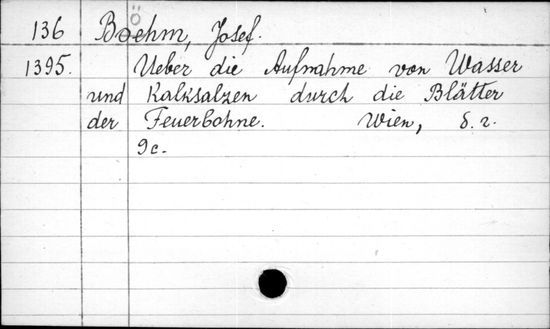 136 Boehm, Josef.
1395. Ueber die Aufnahme von Wasser
und Kalksalzen durch die Blätter
der Feuerbohne. Wien, s. a.
9c.